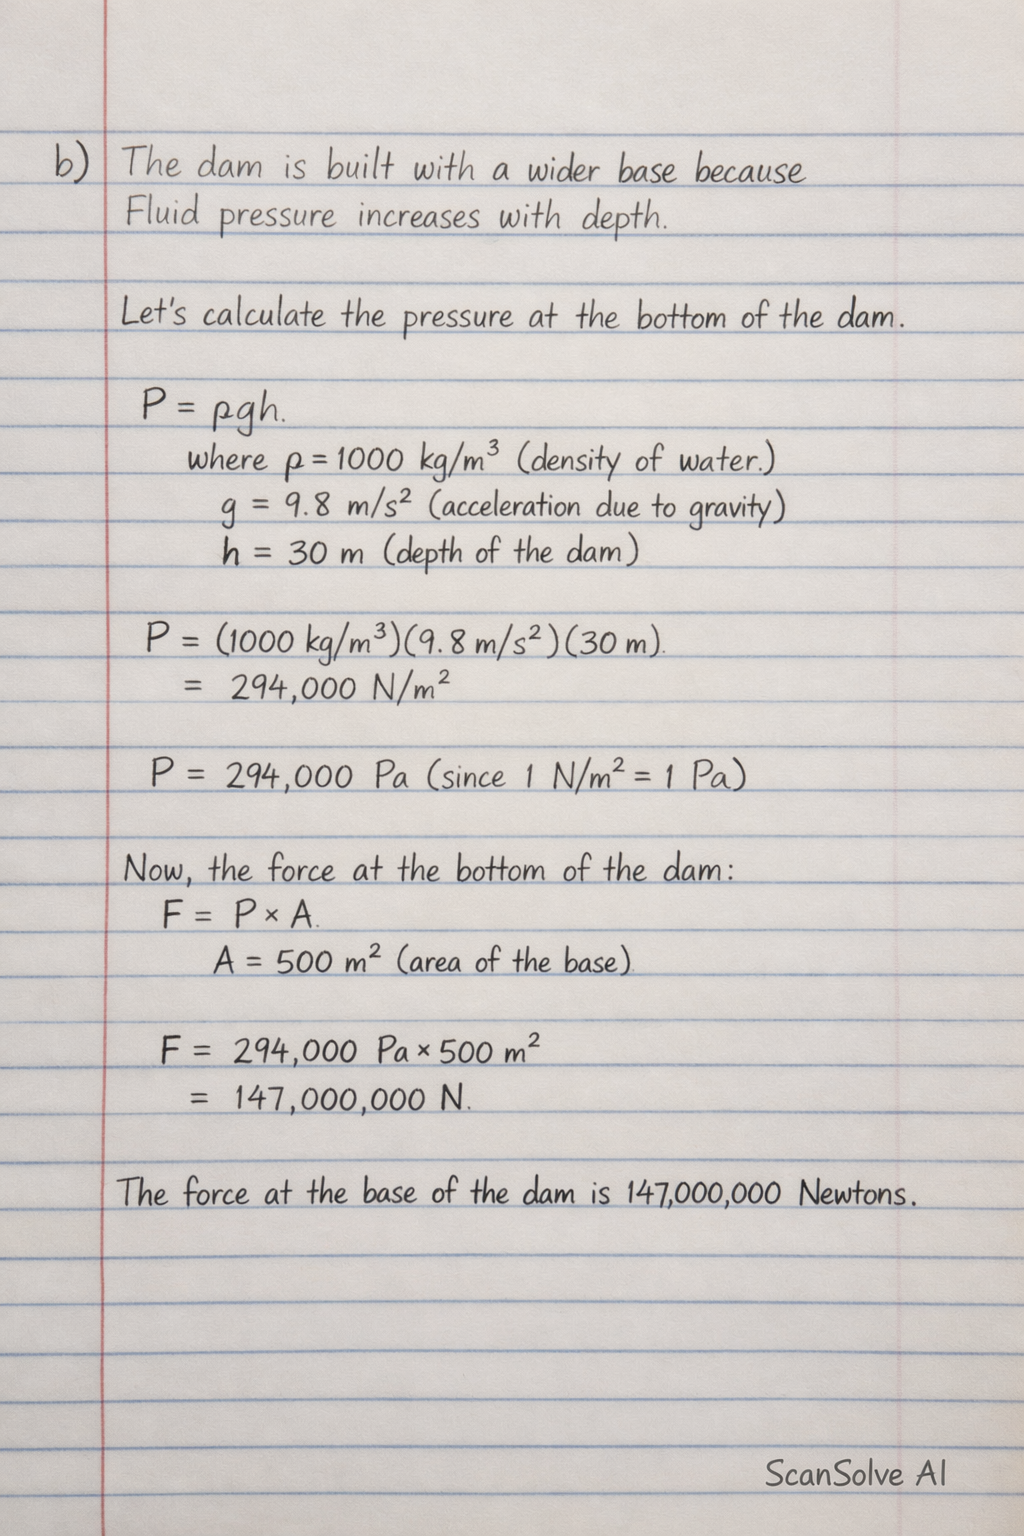 b) The dam is built with a wider base because
Fluid pressure increases with depth.
Let's calculate the pressure at the bottom of the dam.
P = ρgh.
where ρ = 1000 kg/m³ (density of water.)
g = 9.8 m/s² (acceleration due to gravity)
h = 30 m (depth of the dam)
P = (1000 kg/m³)(9.8 m/s²)(30 m).
= 294,000 N/m²
P = 294,000 Pa (since 1 N/m² = 1 Pa)
Now, the force at the bottom of the dam:
F = P × A.
A = 500 m² (area of the base).
F = 294,000 Pa × 500 m²
= 147,000,000 N.
The force at the base of the dam is 147,000,000 Newtons.
ScanSolve AI